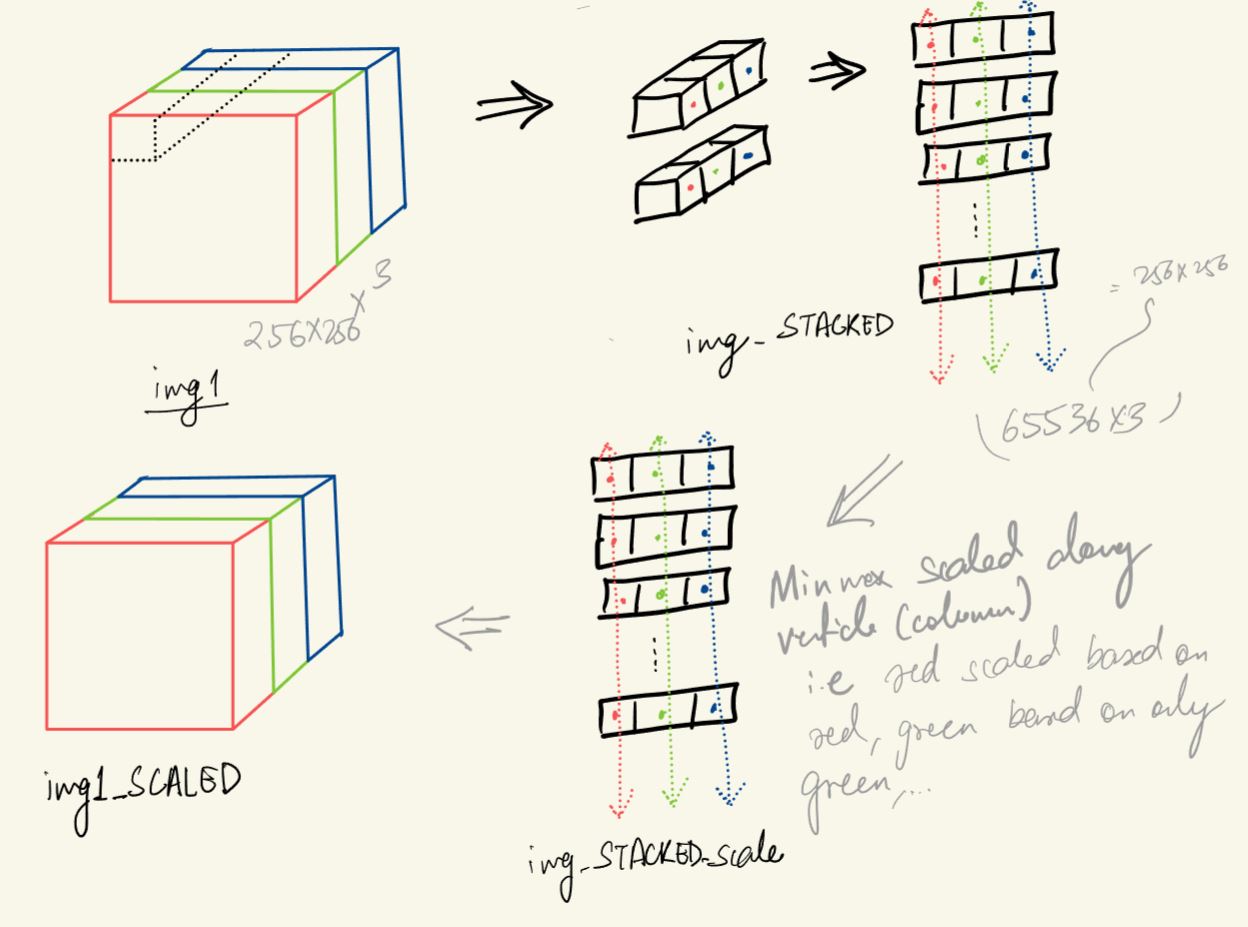 256x256x3
img1
img_STACKED
= 256x256
(65536x3)
Minmax scaled along
verticle (column)
i.e red scaled based on
red, green based on only
green,...
img_STACKED_scale
img1_SCALED